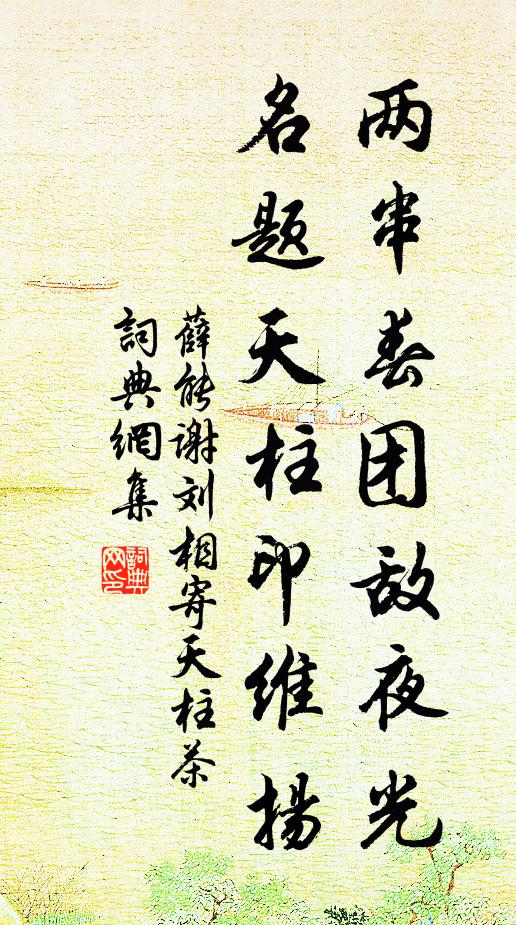 两串春团敌夜光
名题天柱印维揚
薛能谢刘相寄天柱茶
詞典網集
詞典网印